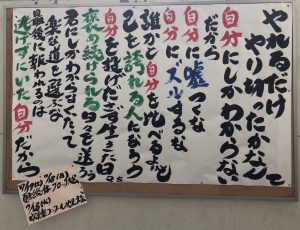 やれるだけ
やり切ったかなんて
自分にしかわからない
だから
自分に嘘つくな
自分にズルするな
誰かと自分を比べるより
己を誇れる人になろう
自分を投げださず生きた日々
褒め続けられる日々を送ろう
君にしかわからなくたって
楽な道を選ぶな
最後に報われるのは
逃げずにいた自分だから